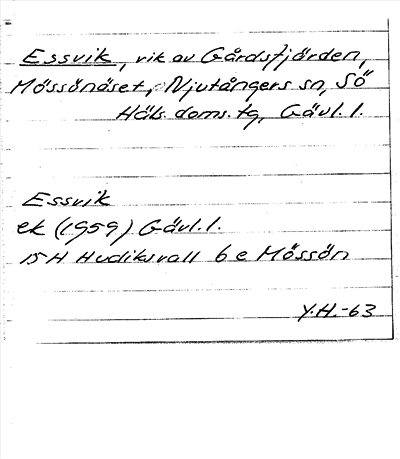 Essvik, vik av Gårdsfjärden,
Mössönäset, Njutångers sn, Sö
Häls. doms. tg, Gävl. l.
Essvik
ek (1959) Gävl. l.
15 H Hudiksvall 6 e Mössön
Y.H.-63